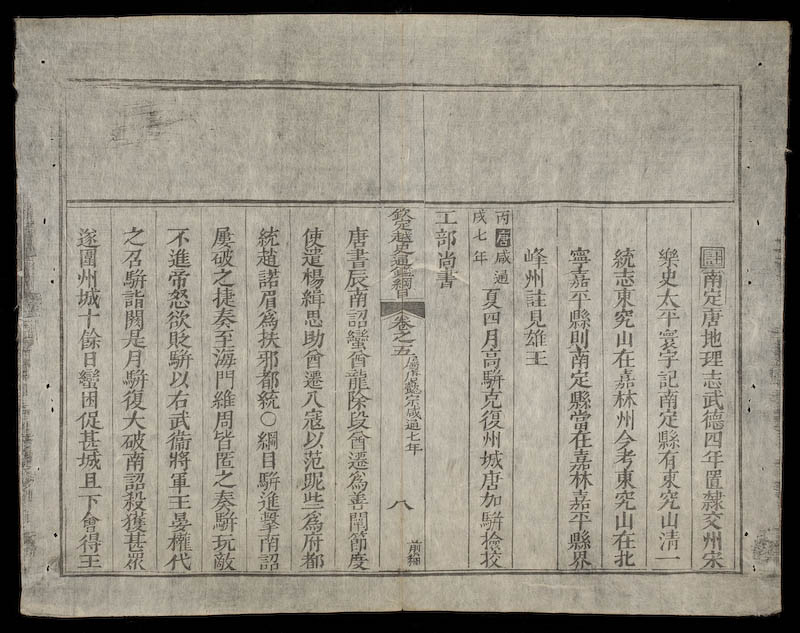 註南定唐地理志武德四年置隸交州宋
樂史太平寰宇記南定縣有東究山清一
統志東究山在嘉林州今考東究山在北
寧嘉平縣則南定縣當在嘉林嘉平縣界
峰州註見雄王
丙戌唐咸通七年夏四月高駢克復州城唐加駢撿挍
工部尚書
欽定越史通鑑綱目卷之五唐懿宗咸通七年 八 前編
唐書辰南詔蠻酋龍除段酋遷為善闡節度
使遣楊緝思助酋遷入寇以范昵些為府都
統趙諾眉為扶邪都統〇綱目駢進擊南詔
屢破之捷奏至海門維周皆匿之奏駢玩敵
不進帝怒欲貶駢以右武衛將軍王晏權代
之召駢詣闕是月駢復大破南詔殺獲甚眾
遂圍州城十餘日蠻困促甚城且下會得王